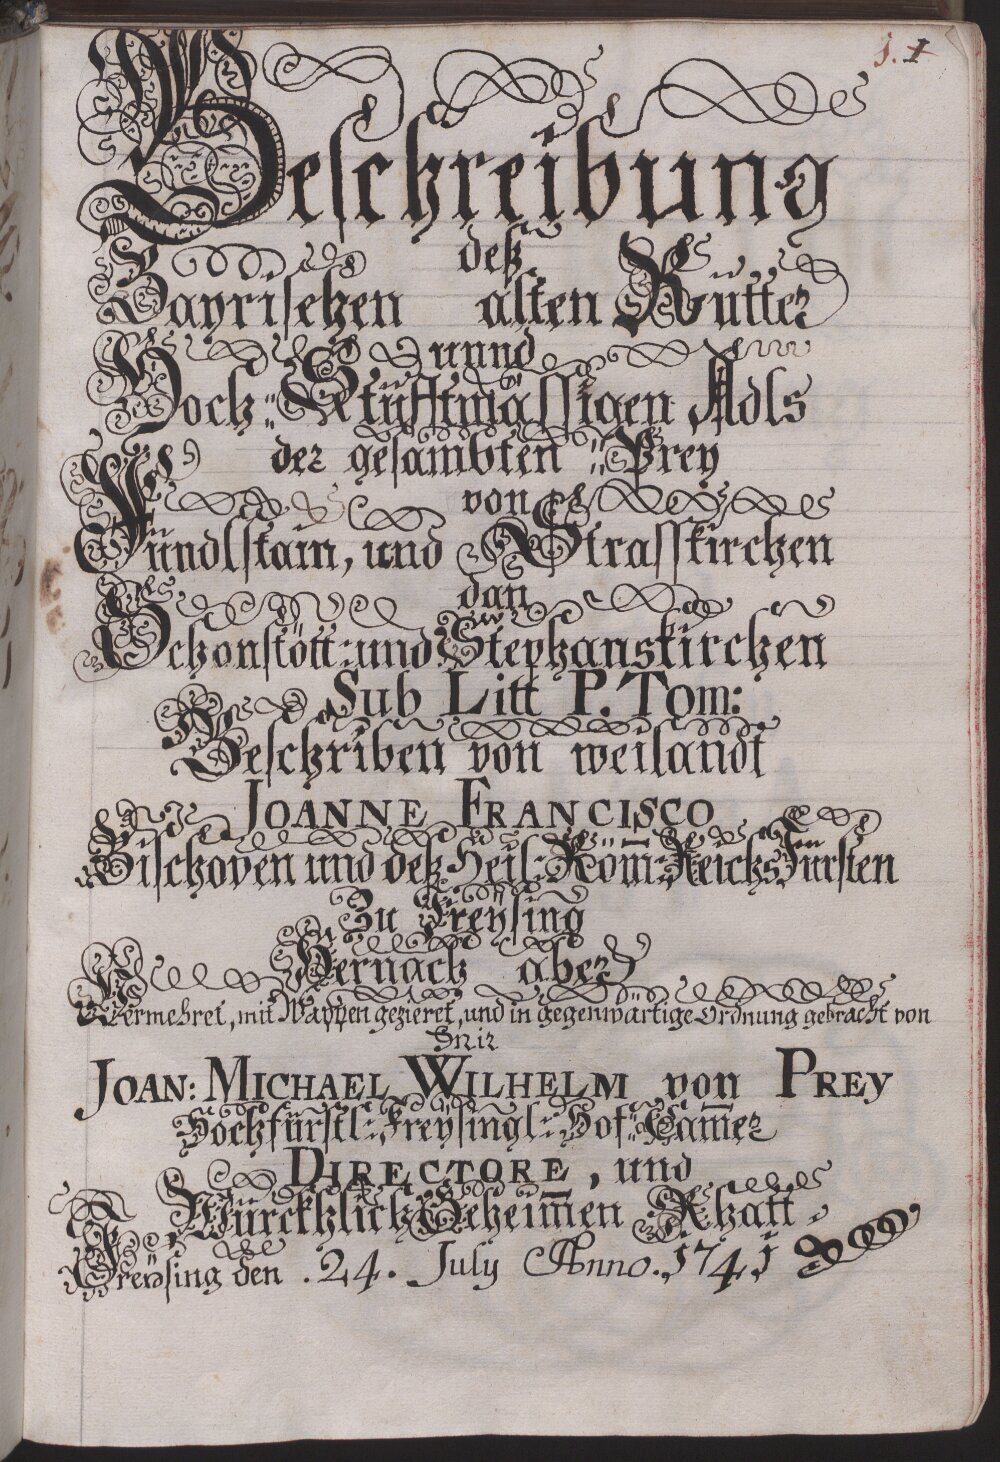 1. 1
Beschreibung
deß
Bayrischen alten Rütter
unnd
Hoch: Stüfftmässigen Adls
der gesambten Prey
von
Fündlstain, und Strasskirchen
dan
Schonstött: und Stephanskirchen
Sub Litt P. Tom:
Beschriben von weilandt
JOANNE FRANCISCO
Bischoven und deß Heil: Röm: Reichs Fürsten
Zu Freysing
Hernach aber
Vermehret, mit Wappen gezieret, und in gegenwärtige Ordnung gebracht von
Mir
JOAN: MICHAEL WILHELM von PREY
Hochfürstl: Freysingl: Hof Cam̅er
DIRECTORE, und
Würckhlich Geheim̅en Rhatt
Freysing den .24. July Anno. 1741